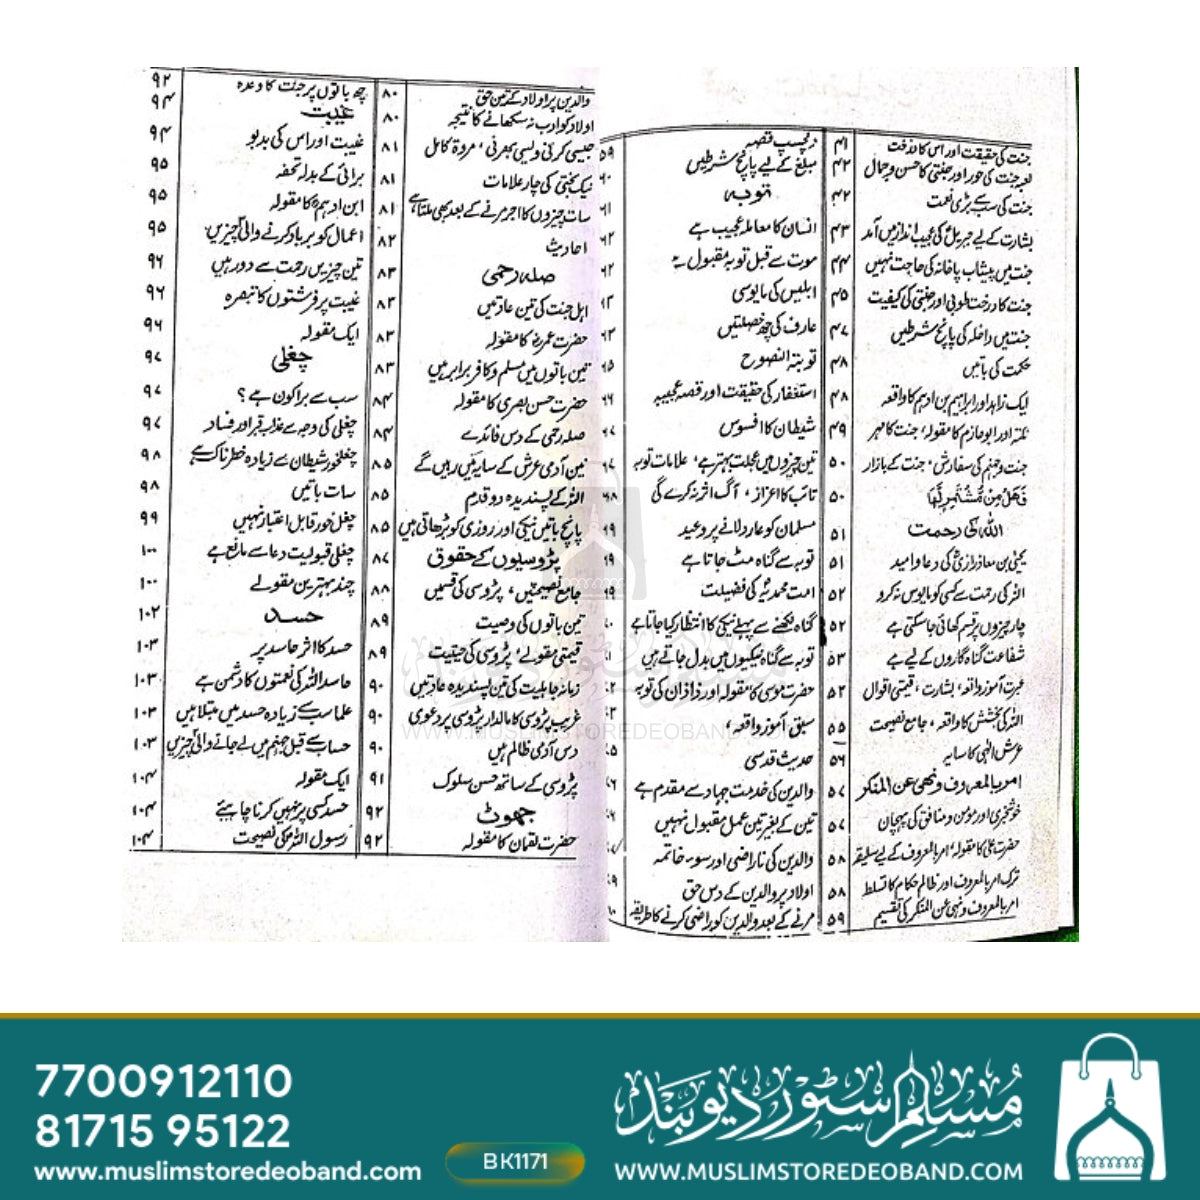 جنت کی حقیقت اور اس کا تذکرہ ۴۱
لعبہ جنت کی حور اور جنتی کا حسن و جمال ۴۲
جنت کی سب سے بڑی نعمت ۴۲
بشارت کے لیے جبریلؑ کی عجیب انداز میں آمد ۴۳
جنت میں پیشاب پاخانہ کی حاجت نہیں ۴۴
جنت کا درخت طوبیٰ اور جنتی کی کیفیت ۴۵
جنت میں داخلہ کی پانچ شرطیں ۴۷
حکمت کی باتیں ۴۸
ایک زاہد اور ابراہیم بن ادہم کا واقعہ ۴۸
نکتہ اور ابو حازم کا مقولہ، جنت کا مہر ۴۹
جنت و جہنم کی سفارش، جنت کے بازار ۵۰
فَهَلْ مِنْ مُّشْتَمِرٍ لَّهَا ۵۰
اللہ کی رحمت ۵۱
یحییٰ بن معاذ رازیؒ کی دعا و امید ۵۱
اللہ کی رحمت سے کسی کو مایوس نہ کرو ۵۲
چار چیزوں پر قسم کھائی جا سکتی ہے ۵۲
شفاعت گناہ گاروں کے لیے ہے ۵۳
عبرت آموز واقعہ، بشارت، قیمتی اقوال ۵۴
اللہ کی بخشش کا واقعہ، جامع نصیحت ۵۵
عرش الٰہی کا سایہ ۵۶
امر بالمعروف و نهی عن المنکر ۵۷
خوشخبری اور مومن و منافق کی پہچان ۵۷
حضرت علی کا مقولہ، امر بالمعروف کے لیے سلیقہ ۵۸
ترک امر بالمعروف اور ظالم حکام کا تسلط ۵۸
امر بالمعروف و نہی عن المنکر کی تقسیم ۵۹
دلچسپ قصہ ۵۹
مبلغ کے لیے پانچ شرطیں ۶۰
توبہ
انسان کا معاملہ عجیب ہے ۶۱
موت سے قبل توبہ مقبول ہے ۶۲
ابلیس کی مایوسی ۶۲
عارف کی چھ خصلتیں ۶۳
توبۃ النصوح
استغفار کی حقیقت اور قصہ عجیبہ
شیطان کا افسوس
تین چیزوں میں عجلت بہتر ہے، علامات توبہ
تائب کا اعزاز، آگ اثر نہ کرے گی ۶۸
مسلمان کو عار دلانے پر وعید
توبہ سے گناہ مٹ جاتا ہے
امت محمدیہؐ کی فضیلت
گناہ لکھنے سے پہلے نیکی کا انتظار کیا جاتا ہے
توبہ سے گناہ نیکیوں میں بدل جاتے ہیں
حضرت موسیٰ کا مقولہ اور ذاذان کی توبہ
سبق آموز واقعہ،
حدیث قدسی
والدین کی خدمت جہاد سے مقدم ہے
تین کے بغیر تین عمل مقبول نہیں
والدین کی ناراضی اور سوء خاتمہ
اولاد پر والدین کے دس حق
مرنے کے بعد والدین کو راضی کرنے کا طریقہ
والدین پر اولاد کے تین حق ۸۰
اولاد کو ادب نہ سکھانے کا نتیجہ ۸۰
جیسی کرنی ویسی بھرنی، مروۃ کامل ۸۱
نیک بختی کی چار علامات ۸۱
سات چیزوں کا اجر مرنے کے بعد بھی ملتا ہے ۸۱
احادیث ۸۲
صلہ رحمی ۸۳
اہل جنت کی تین عادتیں ۸۳
حضرت عمرؓ کا مقولہ ۸۳
تین باتوں میں مسلم و کافر برابر ہیں ۸۳
حضرت حسن بصری کا مقولہ ۸۴
صلہ رحمی کے دس فائدے ۸۴
تین آدمی عرش کے سایہ میں رہیں گے ۸۵
اللہ کے پسندیدہ دو قدم ۸۵
پانچ باتیں نیکی اور روزی کو بڑھاتی ہیں ۸۵
پڑوسیوں کے حقوق ۸۷
جامع نصیحتیں، پڑوسی کی قسمیں ۸۸
تین باتوں کی وصیت ۸۹
قیمتی مقولے، پڑوسی کی حیثیت ۸۹
زمانہ جاہلیت کی تین پسندیدہ عادتیں ۹۰
غریب پڑوسی کا مالدار پڑوسی پر دعوی ۹۰
دس آدمی ظالم ہیں ۹۰
پڑوسی کے ساتھ حسن سلوک ۹۱
جھوٹ ۹۲
حضرت لقمان کا مقولہ ۹۲
چھ باتوں پر جنت کا وعدہ ۹۲
غیبت ۹۴
غیبت اور اس کی بدبو ۹۴
برائی کے بدلہ تحفہ ۹۵
ابن ادہمؒ کا مقولہ ۹۵
اعمال کو برباد کرنے والی چیزیں ۹۵
تین چیزیں رحمت سے دور ہیں ۹۶
غیبت پر فرشتوں کا تبصرہ ۹۶
ایک مقولہ ۹۶
چغلی ۹۷
سب سے برا کون ہے؟ ۹۷
چغلی کی وجہ سے عذاب قبر اور فساد ۹۷
چغلخور شیطان سے زیادہ خطرناک ہے ۹۸
سات باتیں ۹۸
چغل خور قابل اعتبار نہیں ۹۹
چغلی قبولیت دعا سے مانع ہے ۱۰۰
چند بہترین مقولے ۱۰۰
حسد ۱۰۲
حسد کا اثر حاسد پر ۱۰۳
حاسد اللہ کی نعمتوں کا دشمن ہے ۱۰۳
علما سب سے زیادہ حسد میں مبتلا ہیں ۱۰۳
حساب سے قبل جہنم میں لے جانے والی چیزیں ۱۰۳
ایک مقولہ ۱۰۴
حسد کسی پر نہیں کرنا چاہیئے ۱۰۴
رسول اللہؐ کی نصیحت ۱۰۴
مسلم سٹور دیوبند
WWW.MUSLIMSTOREDEOBAND.COM
7700912110
81715 95122
www.muslimstoredeoband.com
BK1171
مسلم سٹور دیوبند
WWW.MUSLIMSTOREDEOBAND.COM